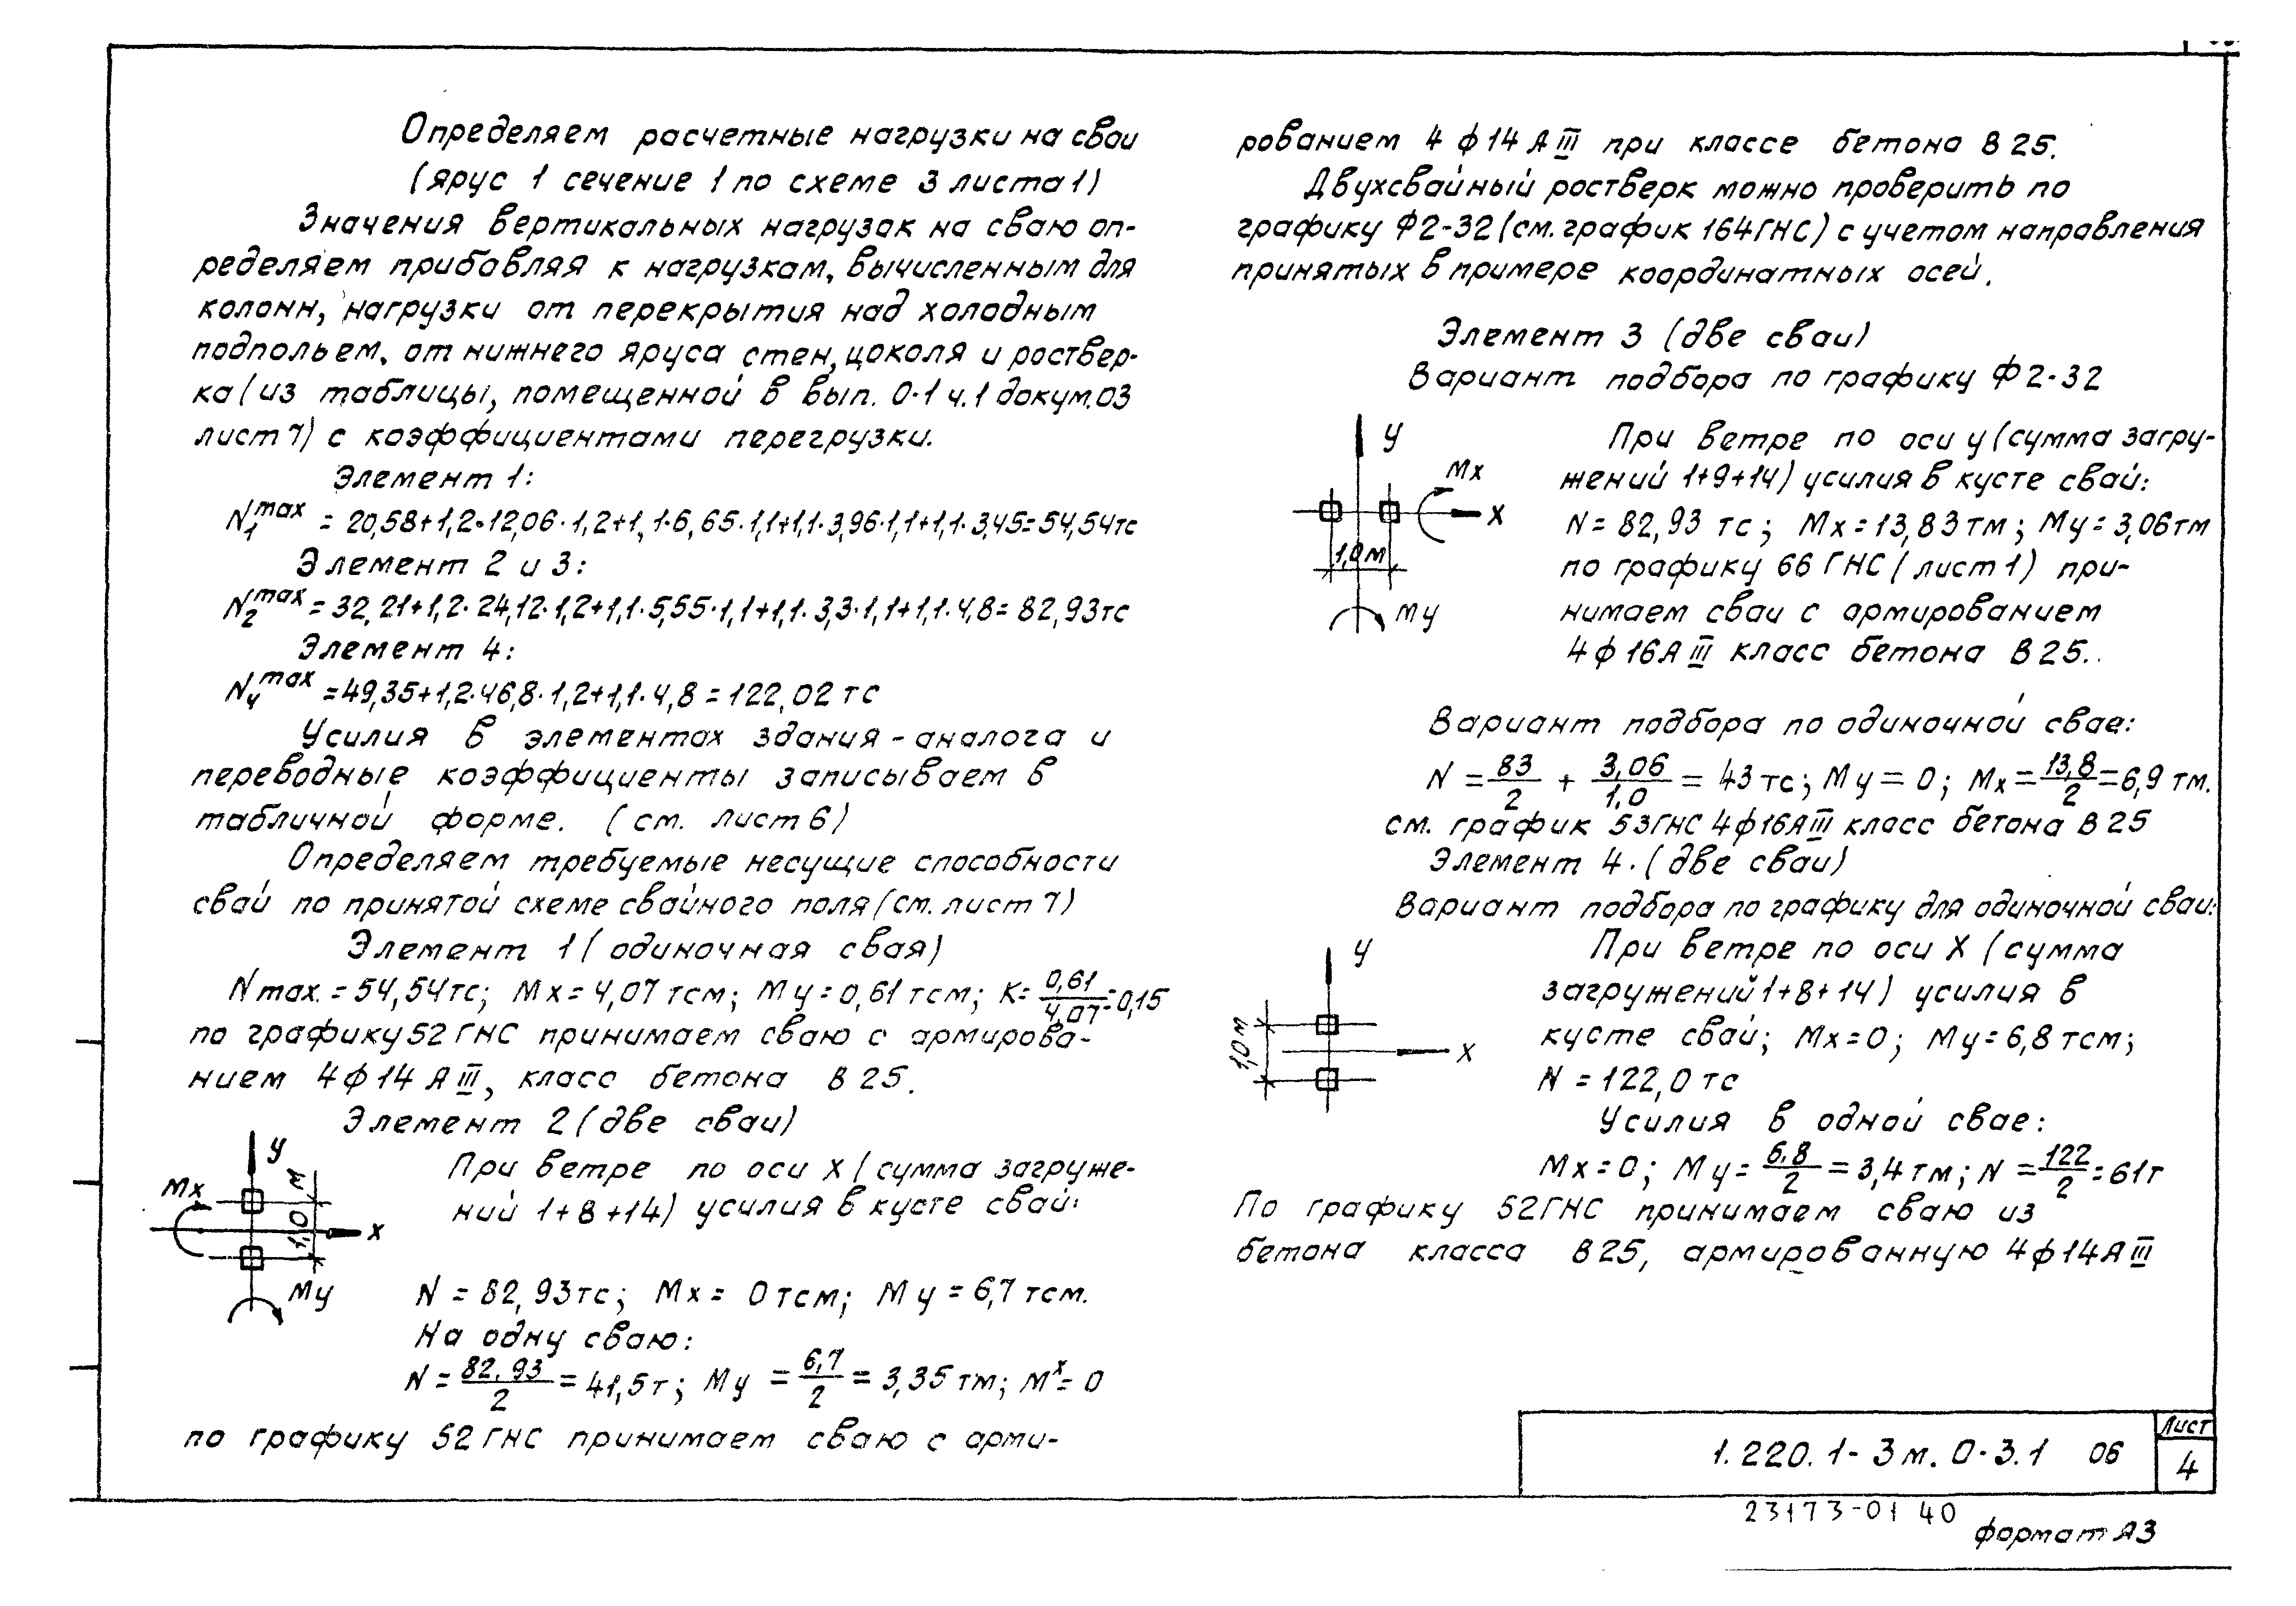 Определяем расчетные нагрузки на сваи
(ярус 1 сечение 1 по схеме 3 листа 1)
Значения вертикальных нагрузок на сваю оп-
ределяем прибавляя к нагрузкам, вычисленным для
колонн, нагрузки от перекрытия над холодным
подпольем, от нижнего яруса стен, цоколя и роствер-
ка (из таблицы, помещенной в вып. 0-1 ч.1 докум.03
лист 7) с коэффициентами перегрузки.
Элемент 1:
N₁max = 20,58+1,2·12,06·1,2+1,1·6,65·1,1+1,1·3,96·1,1+1,1·3,45=54,54тс
Элемент 2 и 3:
N₂max = 32,21+1,2·24,12·1,2+1,1·5,55·1,1+1,1·3,3·1,1+1,1·4,8= 82,93тс
Элемент 4:
N₄max =49,35+1,2·46,8·1,2+1,1·4,8 = 122,02 тс
Усилия в элементах здания-аналога и
переводные коэффициенты записываем в
табличной форме. (см. лист 6)
Определяем требуемые несущие способности
свай по принятой схеме свайного поля (см. лист 7)
Элемент 1 (одиночная свая)
Nmax. = 54,54тс; Mx= 4,07 тсм; My=0,61 тсм; K= 0,61/4,07 =0,15
по графику 52 ГНС принимаем сваю с армирова-
нием 4ф14 АIII, класс бетона В25.
Элемент 2 (две сваи)
y
1,0 м
Mx
x
My
При ветре по оси X (сумма загруже-
ний 1+8+14) усилия в кусте свай:
N = 82,93тс; Mx= 0тсм; My = 6,7 тсм.
На одну сваю:
N = 82,93/2 = 41,5т; My = 6,7/2 = 3,35 тм; Mx= 0
по графику 52 ГНС принимаем сваю с арми-
рованием 4 ф14 АIII при классе бетона В25.
Двухсвайный ростверк можно проверить по
графику Ф2-32 (см. график 164ГНС) с учетом направления
принятых в примере координатных осей.
Элемент 3 (две сваи)
Вариант подбора по графику Ф2-32
y
Mx
x
1,0м
My
При ветре по оси y (сумма загру-
жений 1+9+14) усилия в кусте свай:
N= 82,93 тс; Mx=13,83тм; My=3,06тм
по графику 66 ГНС (лист 1) при-
нимаем сваи с армированием
4ф16АIII класс бетона В25.
Вариант подбора по одиночной свае:
N = 83/2 + 3,06/1,0 = 43 тс; My = 0; Mx= 13,8/2 =6,9 тм.
см. график 53ГНС 4ф16АIII класс бетона В25
Элемент 4. (две сваи)
Вариант подбора по графику для одиночной сваи:
y
1,0м
x
При ветре по оси X (сумма
загружений 1+8+14) усилия в
кусте свай; Mx=0; My=6,8 тсм;
N = 122,0 тс
Усилия в одной свае:
Mx=0; My= 6.8/2 = 3,4 тм; N = 122/2 = 61т
По графику 52ГНС принимаем сваю из
бетона класса В25, армированную 4ф14АIII
1.220.1-3м.0-3.1 06
Лист
4
23173-01 40
формат А3